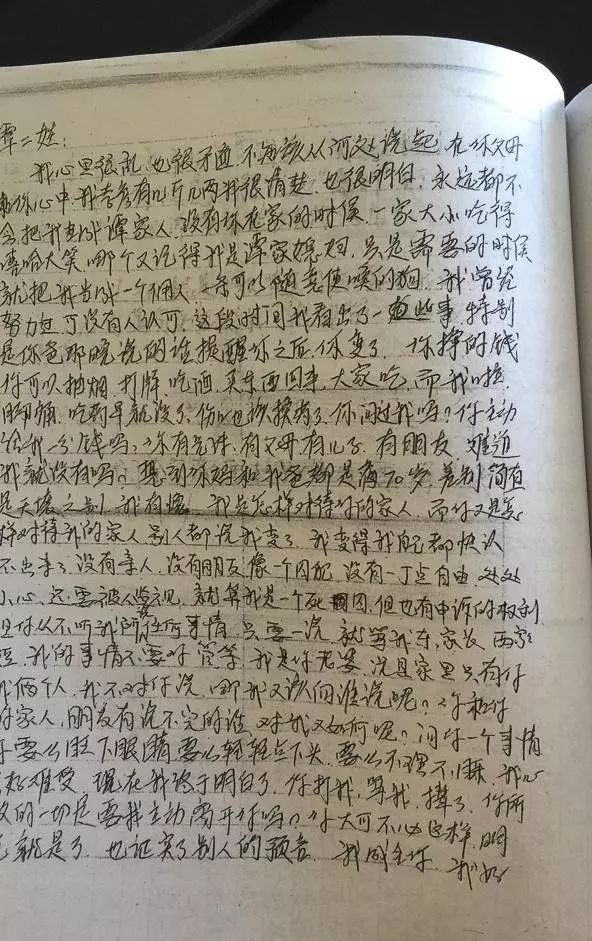 二娃:
我心里很乱,也很矛盾,不知该从何处说起,在你父母
和你心中我李有几斤几两我很清楚,也很明白,永远都不
会把我当成谭家人,没有你在家的时候,一家大小吃得
嘻哈大笑,哪个又记得我是谭家媳妇,只是需要的时候
就把我当成一个佣人,一条可以随意使唤的狗,我曾经
努力过,可没有人认可,这段时间我看出了一些事,特别
是你爸那晚说的话提醒你之后,你变了,你挣的钱
你可以抽烟,打牌,吃酒,买东西回来,大家吃,而我咳,
脚痛,吃药早就没了,你问过我吗?你主动
给我一分钱吗?你有兄妹,有父母有儿子,有朋友,难道
我就没有吗?想到你妈和我爸都是满70岁,差别简直
是天壤之别,我有 我是怎样对待你的家人,而你又是怎
样对待我的家人,别人都说我变了,我变得我自己都快认
不出来了,没有亲人,没有朋友,像一个囚犯,没有一丁点自由,处处
小心,还要被人监视,就算我是一个死囚,但也有申诉的权利,
但你从不听我所 任何事情,只要一说,就 我东家长,西家
短,我的事情不要你管等,我是你老婆,况且家里只有你
我俩个人,我不对你说,那我又该向谁说呢?你和你
你家人,朋友有说不完的话,对我又如何呢?问你一个事情
要么眨下眼睛,要么轻轻点下头,要么不理不睬,我心
好难受,现在我终于明白了,你打我,骂我, 了,你所
的一切是要我主动离开你吗?你大可不必这样,明
就是了,也证实了别人的预言,我成全你,我好